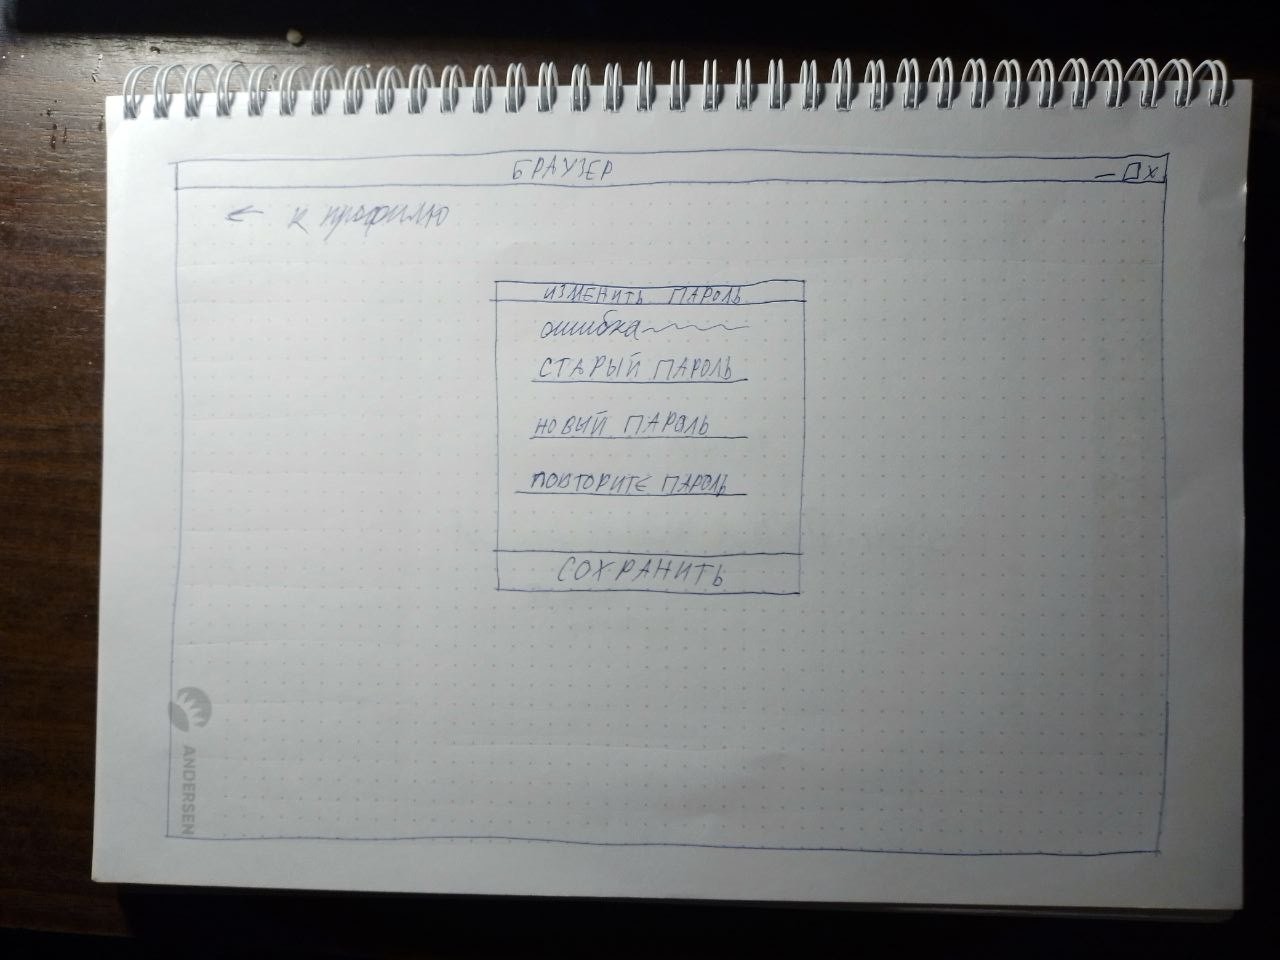 БРАУЗЕР
← к профилю
ИЗМЕНИТЬ ПАРОЛЬ
ошибка
СТАРЫЙ ПАРОЛЬ
НОВЫЙ ПАРОЛЬ
ПОВТОРИТЕ ПАРОЛЬ
СОХРАНИТЬ
ANDERSEN